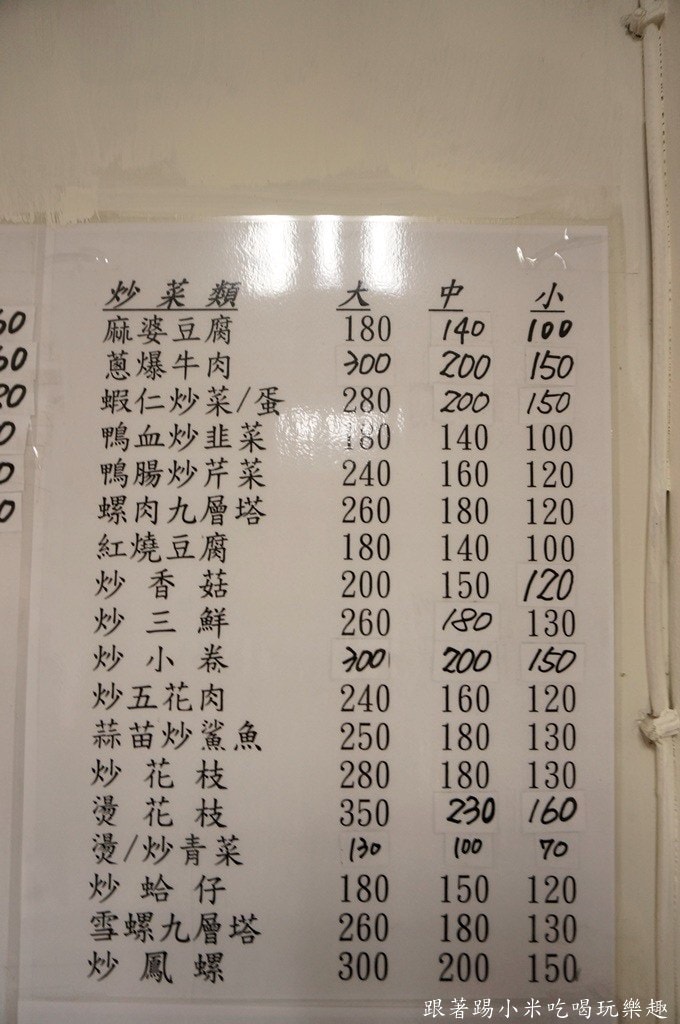 炒菜類 大 中 小
麻婆豆腐 180 140 100
蔥爆牛肉 300 200 150
蝦仁炒菜/蛋 280 200 150
鴨血炒韭菜 180 140 100
鴨腸炒芹菜 240 160 120
螺肉九層塔 260 180 120
紅燒豆腐 180 140 100
炒香菇 200 150 120
炒三鮮 260 180 130
炒小卷 300 200 150
炒五花肉 240 160 120
蒜苗炒鯊魚 250 180 130
炒花枝 280 180 130
燙花枝 350 230 160
燙/炒青菜 130 100 70
炒蛤仔 180 150 120
雪螺九層塔 260 180 130
炒鳳螺 300 200 150
跟著踢小米吃喝玩樂趣